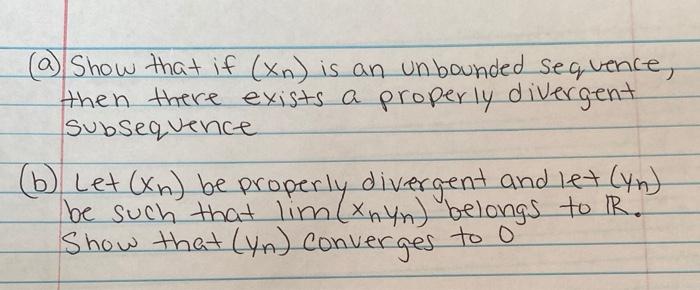 (a) Show that if (xn) is an unbounded sequence,
then there exists a properly divergent
subsequence
(b) Let (xn) be properly divergent and let (yn)
be such that lim(xnyn) belongs to ℝ.
Show that (yn) converges to 0